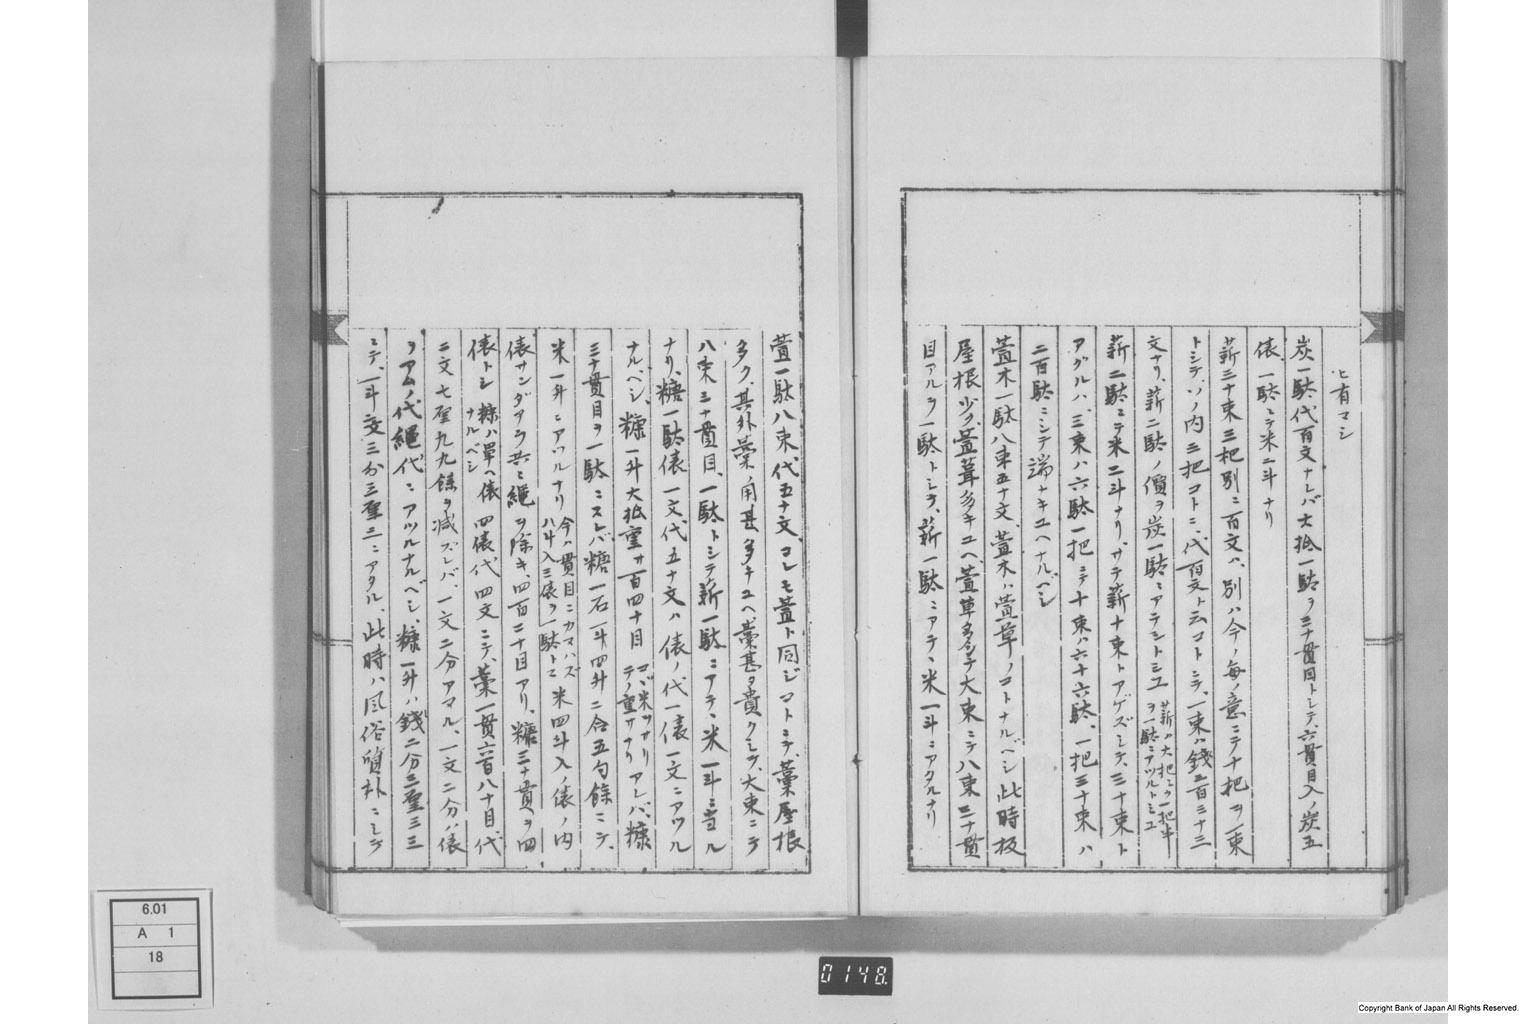 ヒ有マシ
炭一駄代百文ナレバ大拾一駄ヲ三十貫目トシテ、六貫目入ノ炭五
俵一駄ニテ米二斗ナリ
薪三十束三把別ニ百文ハ、別ハ今ノ毎ノ意ニテ十把ヲ一束
トシテ、ソノ内三把コトニ、代百文ト云コトニテ、一束ハ錢三百三十三
文ナリ、薪二駄ノ價ヲ炭一駄ニアテシトシユ
薪ハ大把ニテ一把半
ヲ一駄ニアツルトミユ
薪二駄ニテ米二斗ナリ、サテ薪十束トアゲズシテ、三十束ト
アグルハ、三束ハ六駄一把ニテ十束ハ六十六駄、一把三十束ハ
二百駄ニシテ端ナキユヘナルベシ
萱木一駄八束五十文、萱木ハ萱草ノコトナルベシ此時板
屋根少ク、萱葺多キユヘ、萱草多シテ大束ニテ八束三十貫
目アルヲ一駄トシテ、薪一駄ニアテ、米一斗ニアタルナリ
萱一駄八束代五十文、コレモ萱ト同ジコトニテ、藁屋根
多ク、其外藁ノ用甚多キユヘ、藁甚タ貴クシテ、大束ニテ
八束三十貫目、一駄トシテ薪一駄ニアテ、米一斗ニ当ル
ナリ、糖一駄俵一文代五十文ハ俵ノ代一俵一文ニアツル
ナルベシ、糠一升大抵重サ百四十目
コハ米ツサリ
テノ重サナリ
アレバ、糠
三十貫目ヲ一駄ニスレバ糖一石一斗四升二合五勺餘ニテ、
米一斗ニアツルナリ
今ハ貫目ニカマハズ
八斗入三俵ヲ一駄トス
米四斗入ノ俵ノ内
俵サンダアラ共ニ縄ヲ除キ、四百二十目アリ、糖三十貫ヲ四
俵トシ
糠ハ單ヘ俵
ナルベシ
四俵代四文ニテ、藁一貫六百八十目代
二文七厘九九餘ヲ減ズレバ、一文二分アマル、一文二分ハ俵
ヲアムノ代縄代ニアツルナルベシ、糠一升ハ錢二分三厘三三
ニテ、一斗二文三分三厘三ニアタル、此時ハ風俗質朴ニシテ
6.01
A 1
18
0148.
Copyright Bank of Japan All Rights Reserved.